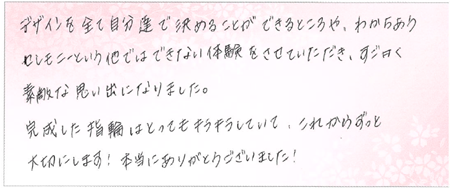 デザインを全て自分達で決めることができるところや、わかちあう
セレモニーという他ではできない体験をさせていただき、すごく
素敵な思い出になりました。
完成した指輪はとってもキラキラしていて、これからずっと
大切にします！本当にありがとうございました！